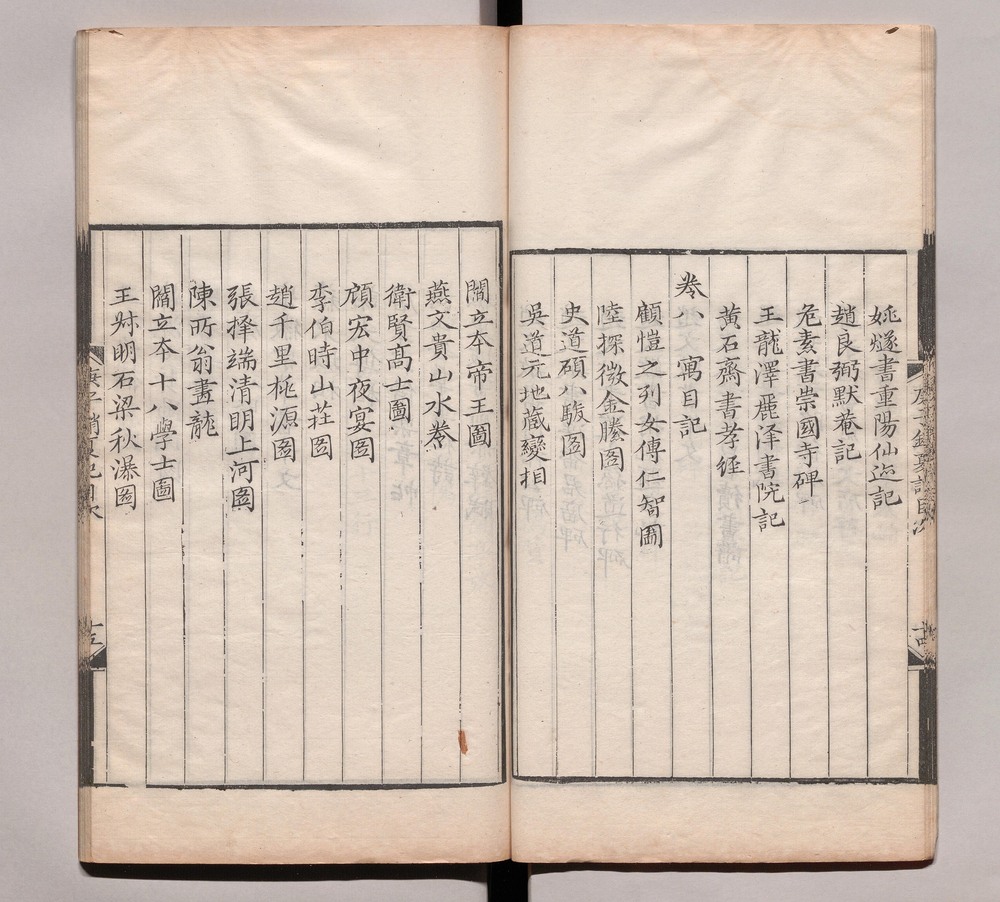 姚燧書重陽仙迹記
趙良弼默菴記
危素書崇國寺碑
王龍澤麗泽書院記
黄石齋書孝經
卷八 寓目記
顧愷之列女傳仁智圖
陸探微金縢圖
史道碩八駿圖
吳道元地藏變相
閻立夲帝王圖
燕文貴山水卷
衛賢高士圖
顧宏中夜宴圖
李伯時山莊圖
趙千里桃源圖
張擇端清明上河圖
陳所翁畫龍
閻立夲十八學士圖
王叔明石梁秋瀑圖
庚子銷夏記目次